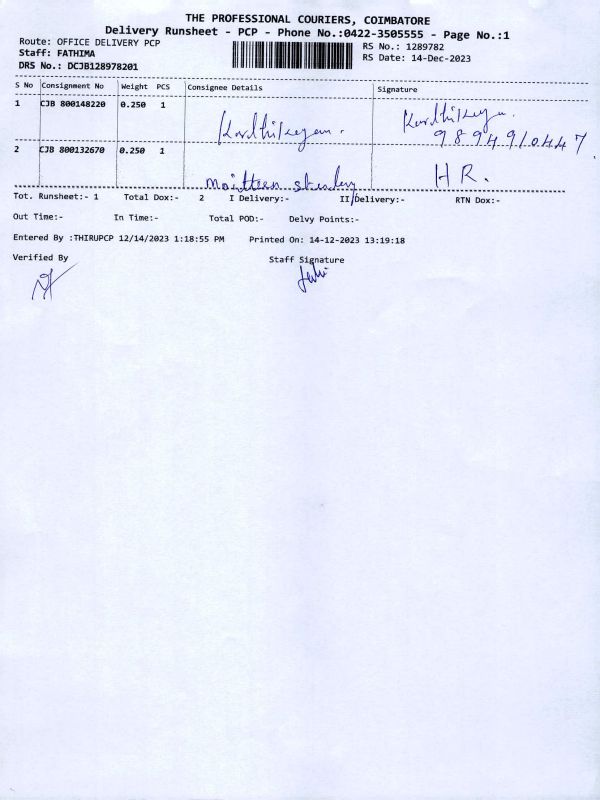 THE PROFESSIONAL COURIERS, COIMBATORE
Delivery Runsheet - PCP - Phone No.:0422-3505555 - Page No.:1
Route: OFFICE DELIVERY PCP
RS No.: 1289782
Staff: FATHIMA
RS Date: 14-Dec-2023
DRS No.: DCJB128978201
S No Consignment No Weight PCS Consignee Details Signature
1 CJB 800148220 0.250 1 Karthikeyan. Karthikeya.
9894910447
2 CJB 800132670 0.250 1 H R.
Tot. Runsheet:- 1 Total Dox:- 2 I Delivery:- II Delivery:- RTN Dox:-
Out Time:- In Time:- Total POD:- Delvy Points:-
Entered By :THIRUPCP 12/14/2023 1:18:55 PM Printed On: 14-12-2023 13:19:18
Verified By Staff Signature